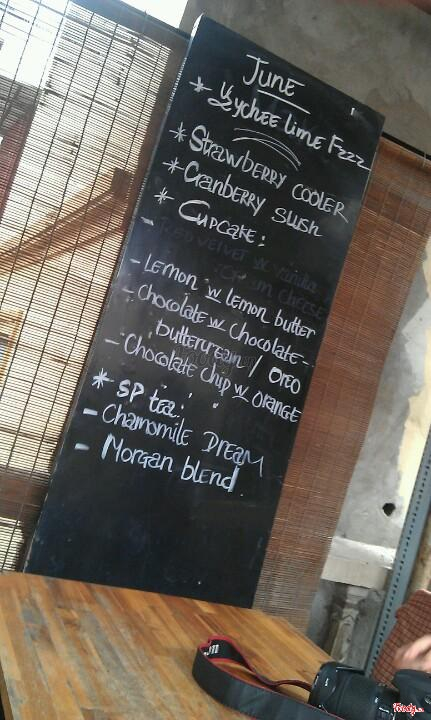 JUNE
* Lychee Lime Fzzz
* Strawberry COOLER
* Cranberry Slush
* Cupcake:
- RED VELVET w vanilla
CREAM CHEESE
- Lemon w lemon butter
- Chocolate w Chocolate-
buttercream / OREO
- Chocolate chip w orange
* SP tea:
- Chamomile DREAM
- Morgan blend
Foody.vn